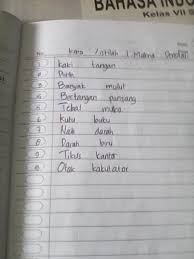 BAHASA INDO
Kelas VII S
No Kata / Istilah Makna Denotasi
1 Kaki tangan
2 Putih
3 Banyak mulut
4 Bertangan panjang
5 Tebal muka
6 Kutu buku
7 Naik darah
8 Darah biru
9 Tikus kantor
10 Otak kalkulator